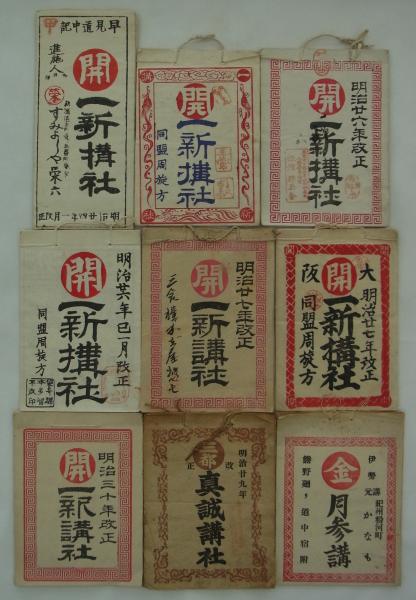 早見道中記
甲
進施人
開
一新構社
すみよしや栄六
明治廿四年一月改正
一
新
講
社
開
一新構社
同盟周旋方
明治廿六年改正
開
一新構社
明治廿六年巳一月改正
開
一新構社
同盟周旋方
明治廿七年改正
開
一新講社
大阪
明治廿七年改正
開
一新構社
同盟周旋方
明治三十年改正
開
一新講社
明治廿九年
改正
三都
真誠講社
伊勢
講元
紀州粉河町
かなも
金
月参講
熊野廻り道中宿附